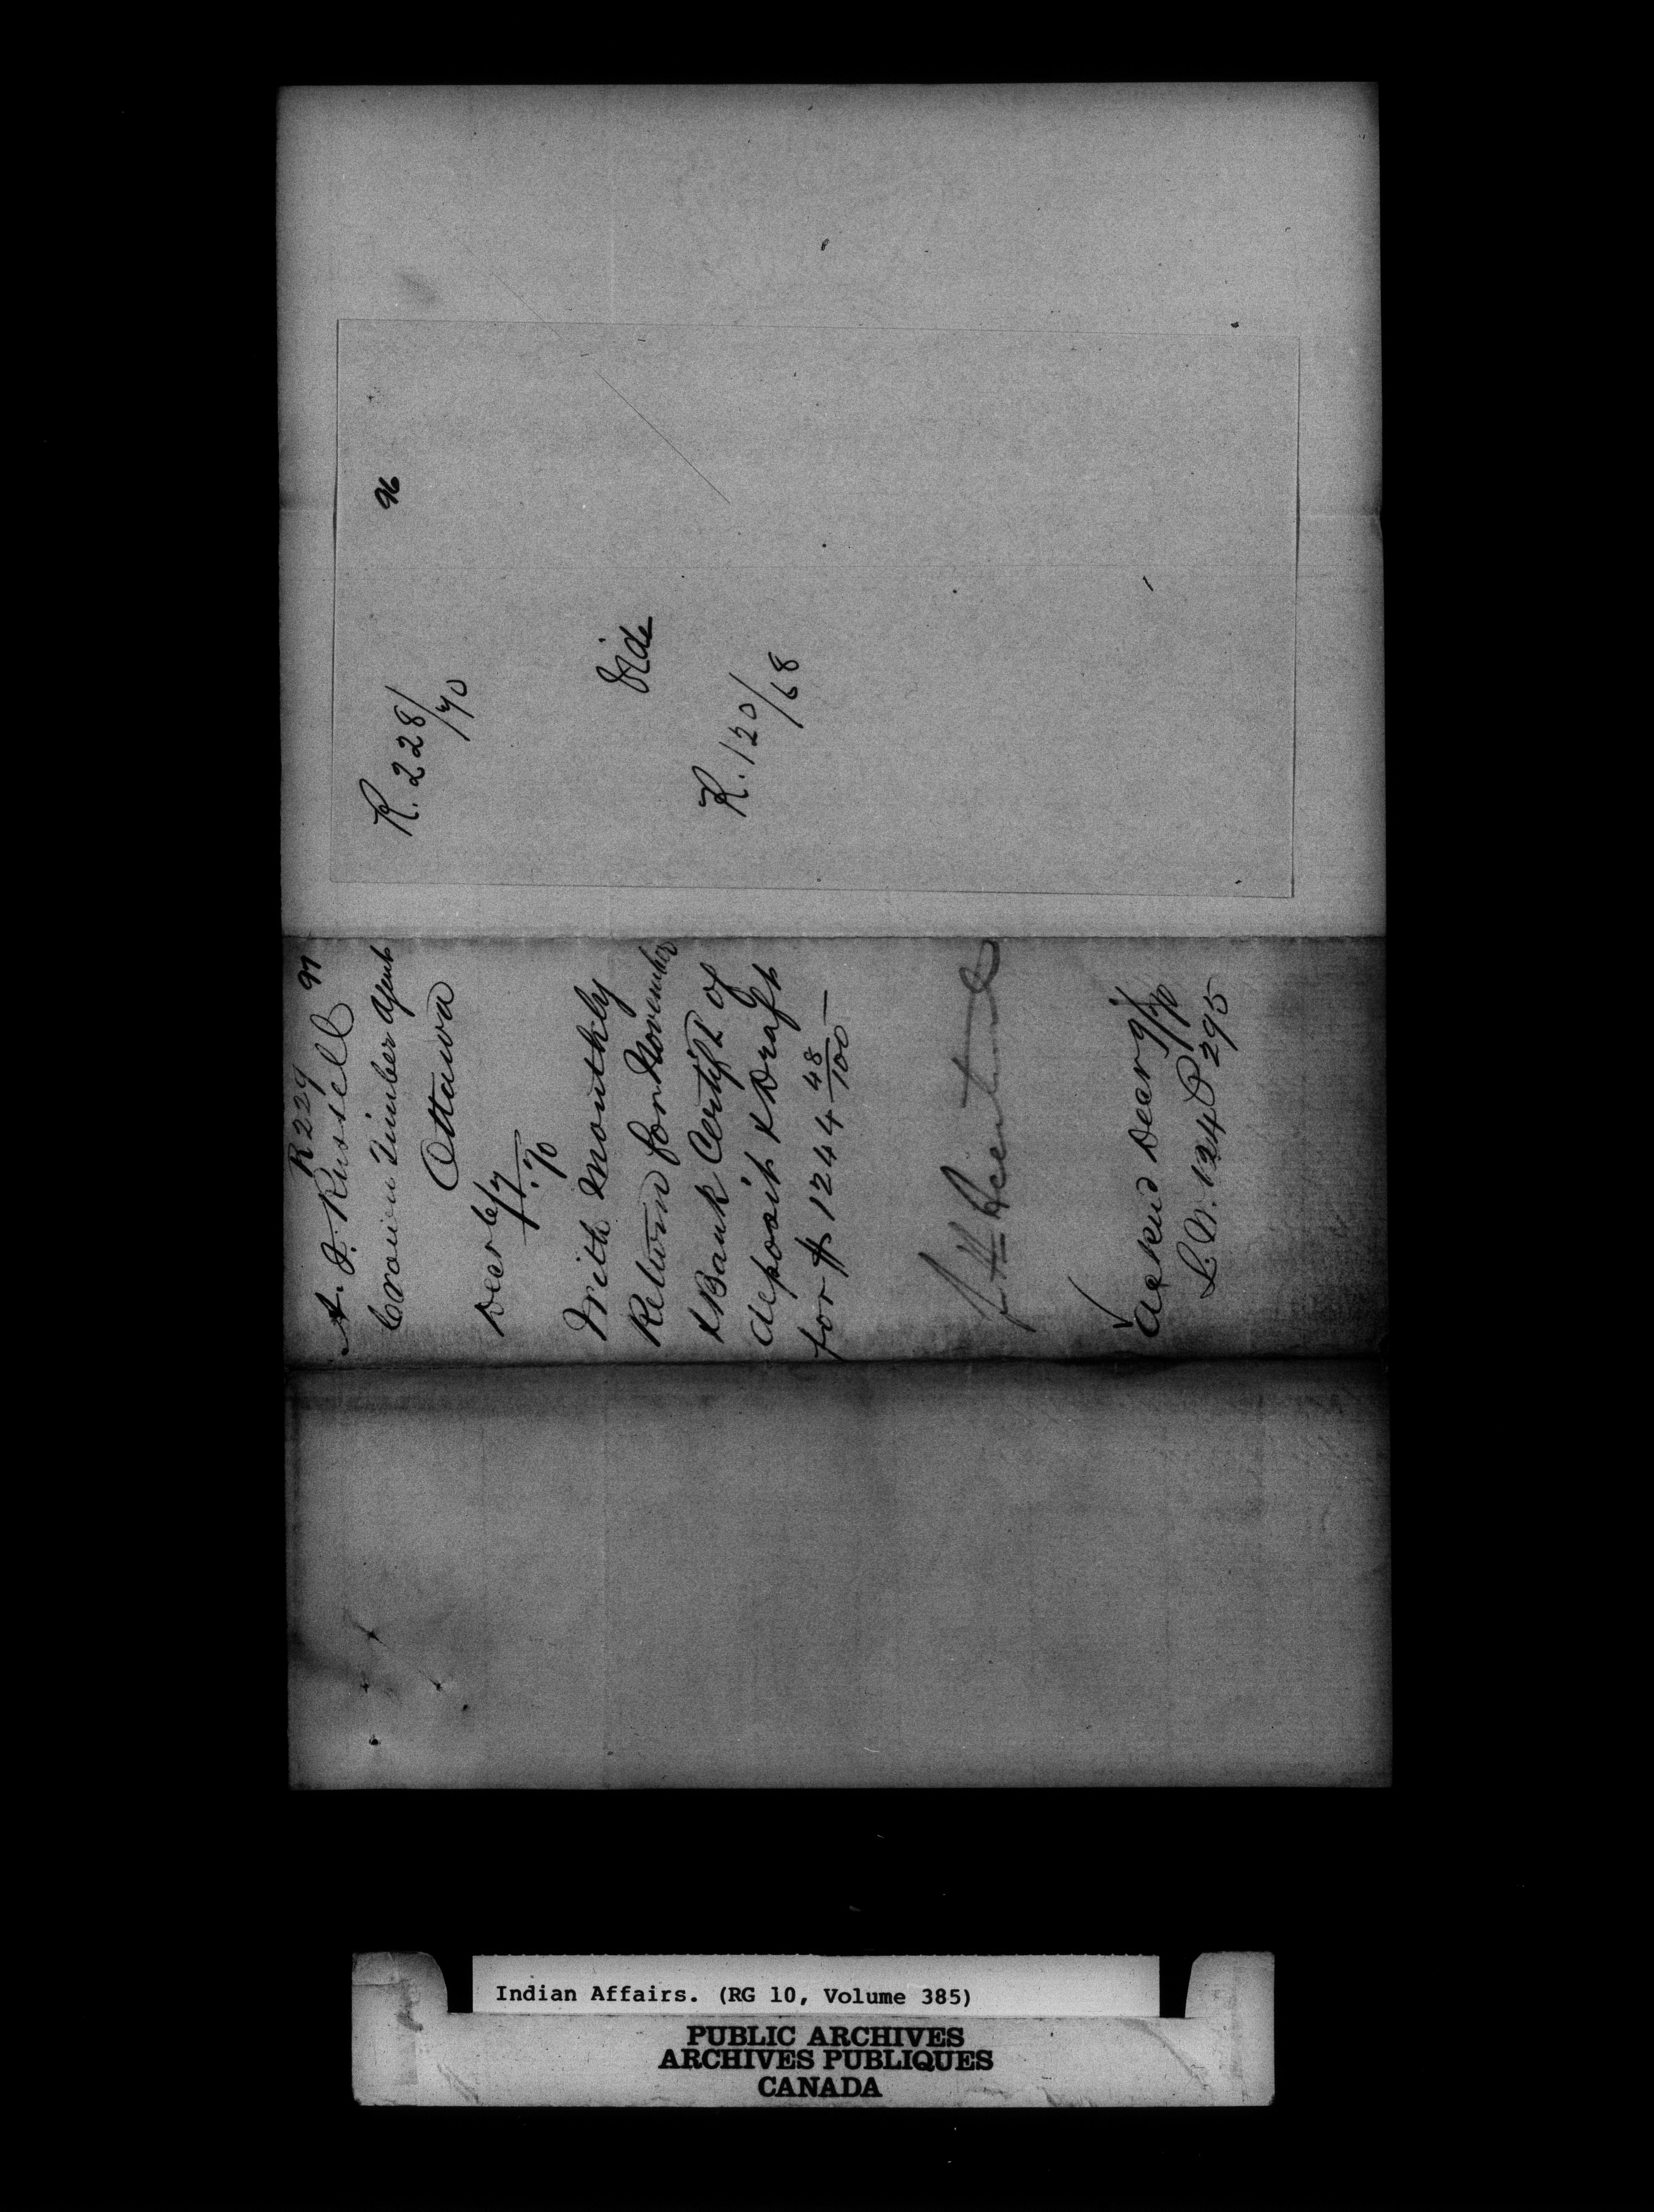 96
R. 228/70
Vide
R. 120/68
97
R229
A. J. Russell
Crown Timber Agent
Ottawa
Decr 6/7.70
With Monthly
Return for November
& Bank Certift of
deposit & Draft
for $ 1244 48/100
Ackend Decr 9/70
L.B. 124 P 295
Indian Affairs. (RG 10, Volume 385)
PUBLIC ARCHIVES
ARCHIVES PUBLIQUES
CANADA